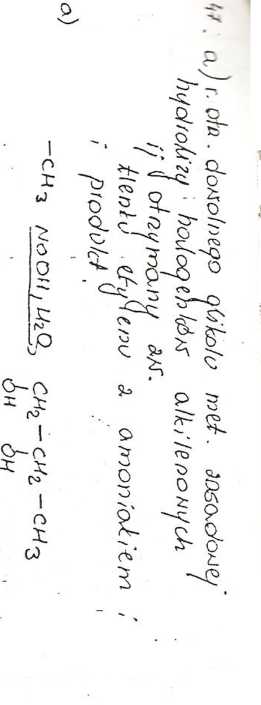 47. a) r. otn. dowolnego glikolu met. zasadowej
hydrolizy halogenków alkilenowych
ij otrzymany zw.
tlenku etylenu z amoniakiem i
i produkt.
a)
-CH3 NaOH, H2O, CH2-CH2-CH3
OH OH